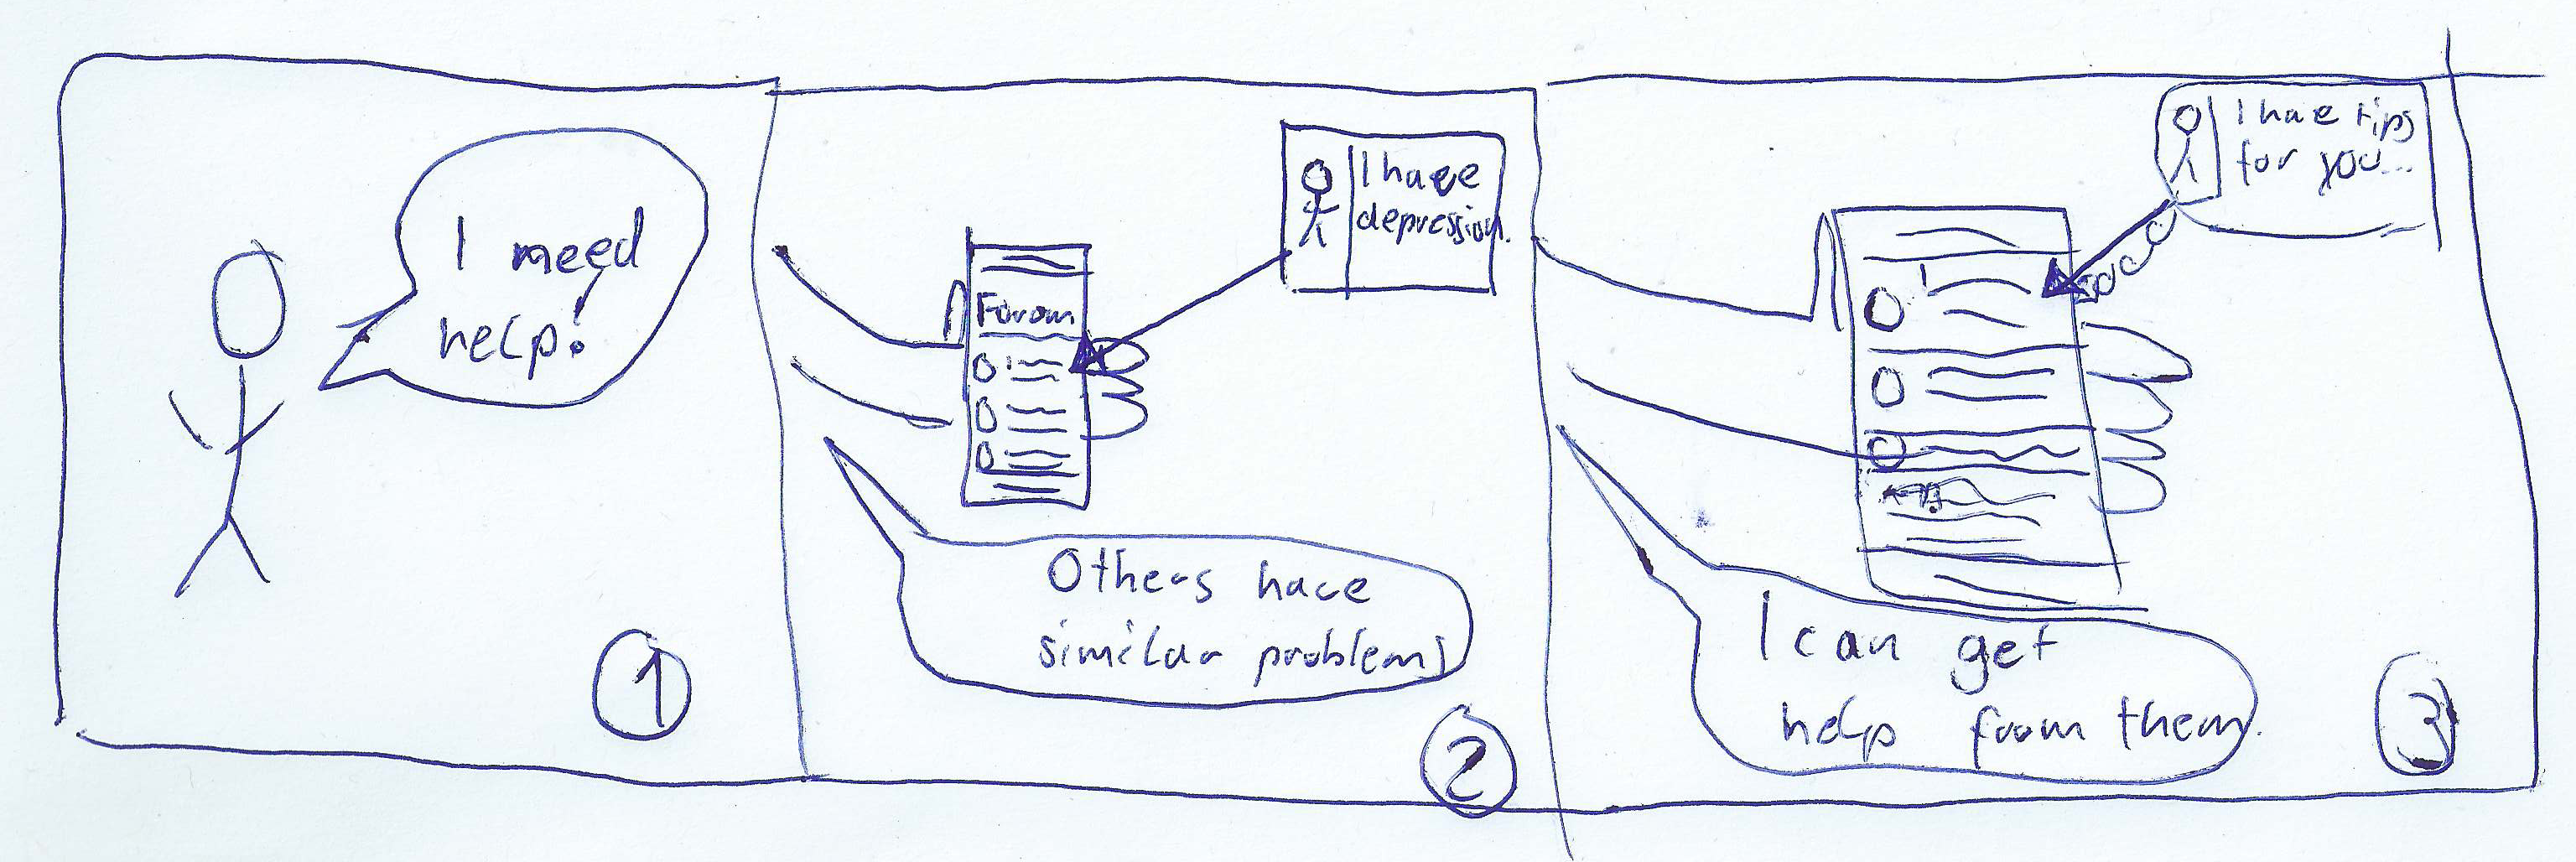 I need
help!
1
I have
depression.
Forum
Others have
similar problems
2
I have tips
for you...
I can get
help from them.
3